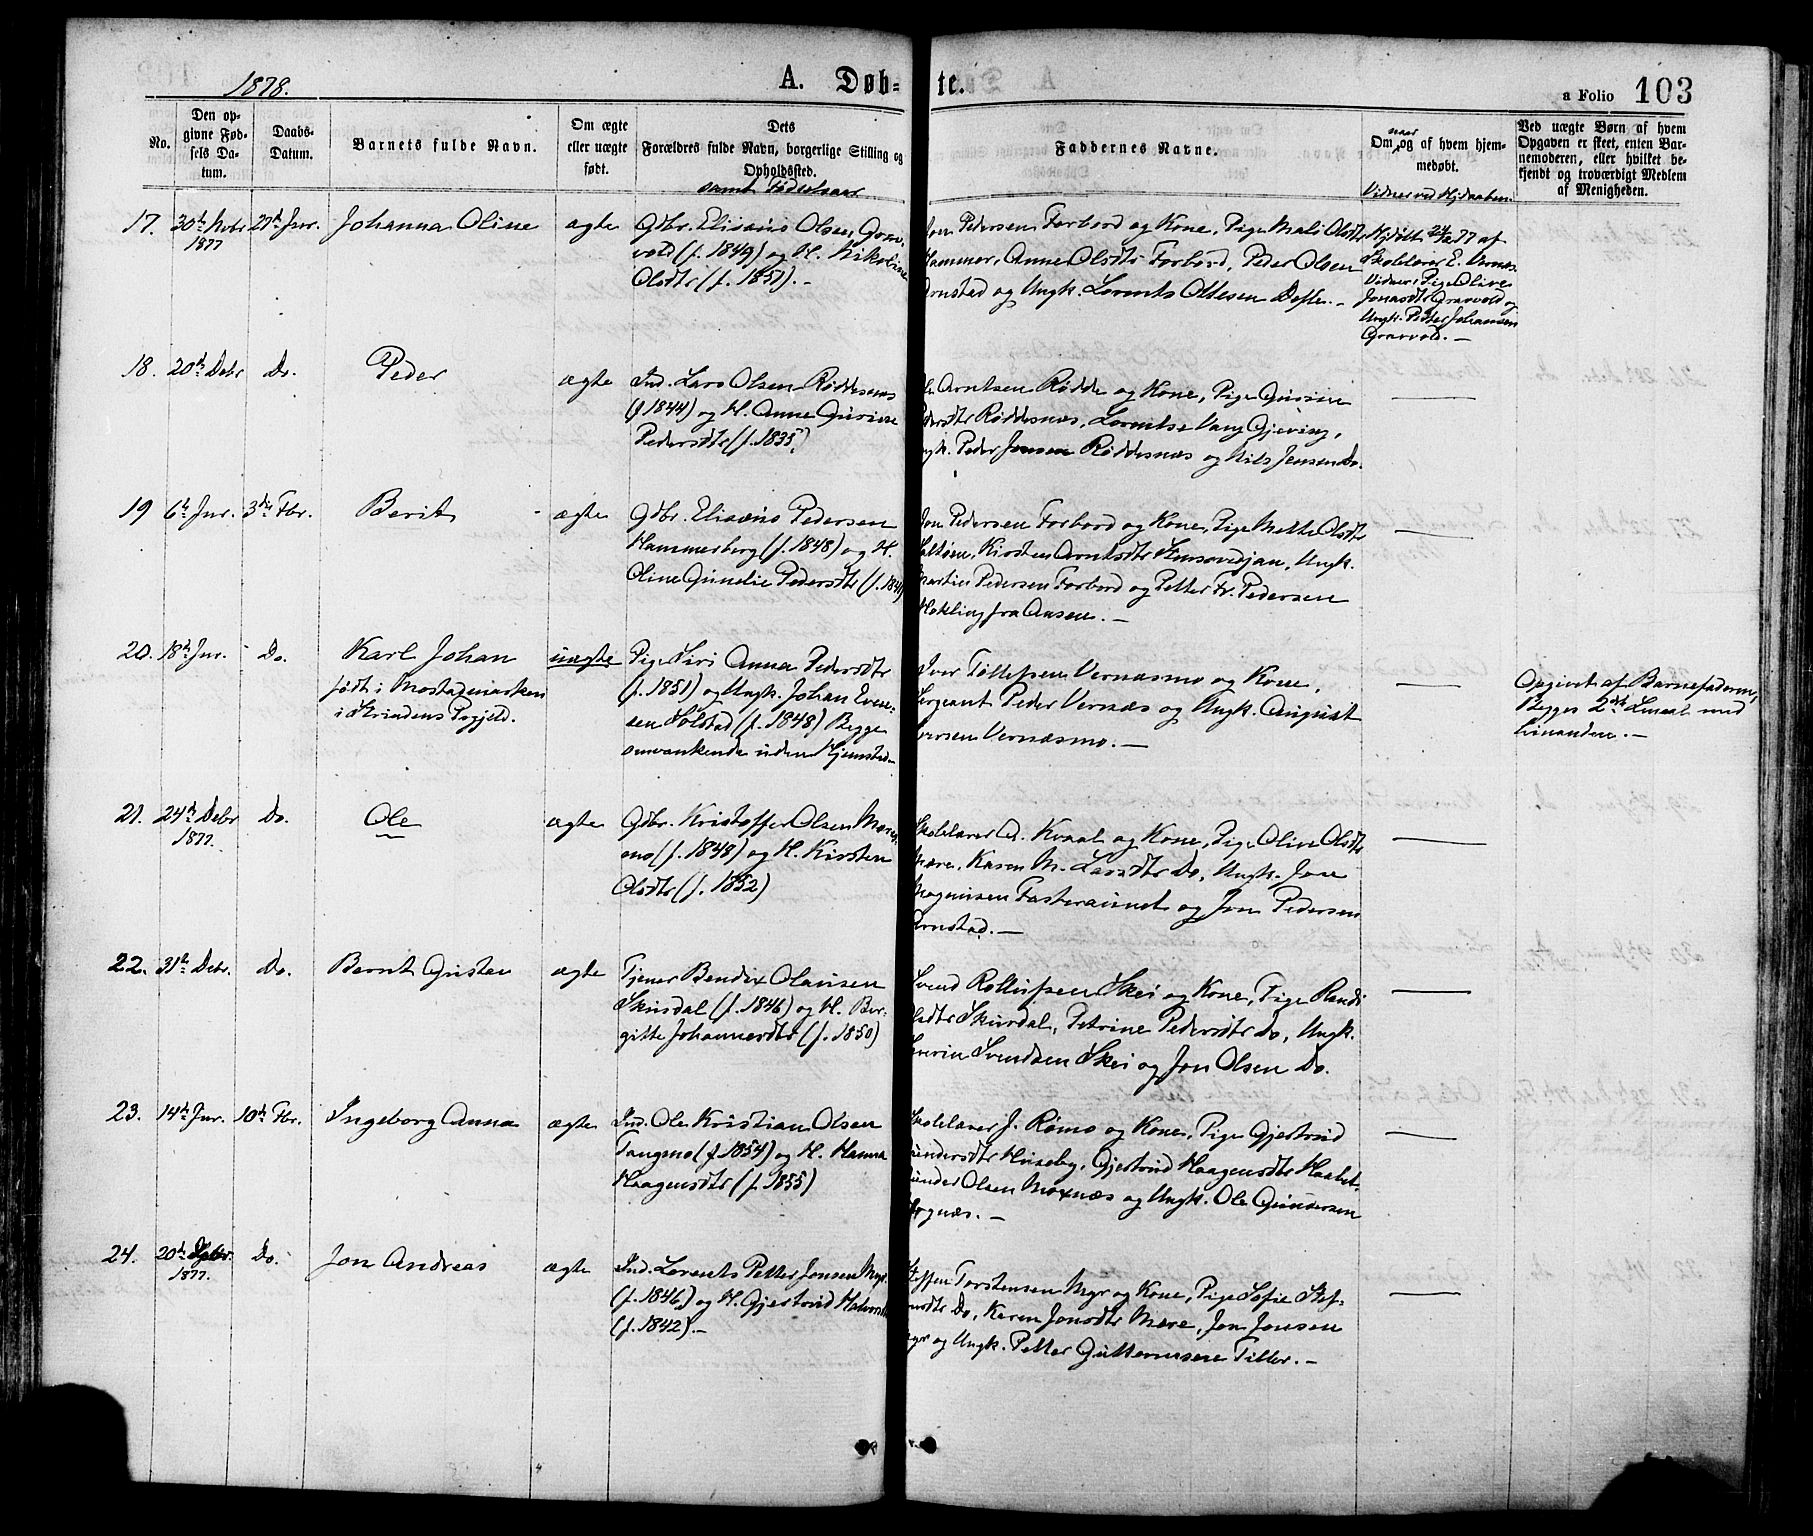 1878.
A. Døb-
te.
a Folio 103
No.
Den op-
givne Fød-
sels Da-
tum.
Daabs-
Datum.
Barnets fulde Navn.
Om ægte
eller uægte
født.
Dets
Forældres fulde Navn, borgerlige Stilling og
Opholdssted.
samt Fødselsaar
Faddernes Navne.
naar
Om og af hvem hjem-
medøbt.
Vidner ved Hjdaaben.
Ved uægte Børn af hvem
Opgaven er skeet, enten Bar-
nemoderen, eller hvilket be-
kjendt og troværdigt Medlem
af Menigheden.
17. 30th Nvbr 1877 27d Jnr. Johanna Oline ægte
Gdbr. Elisæus Olsen
(f. 1849) og H. Nikoline
Olsdtr (f. 1851). —
Pedersen Forbord og Kone, Pige Mali Olsdtr
Hammer, Anne Olsdtr Forbord, Peder Olsen
Arnstad og Ungk. Lorents Ottesen —
Hjdøbt 24/12 77 af
Skolelærer E. Vernæs.
Vidner: Pige Olive
Jonasdtr Gravvold og
Ungk. Petter Johansen
Gravvold. —
18. 20d Debr Do. Peder ægte
Ind. Lars Olsen Røddesnæs
(f 1844) og H. Anne Gurine
Pedersdtr (f. 1835)
Arntsen Rødde og Kone, Pige Gurine
Pedersdtr Røddesnæs, Lorentse Vang Gjeving,
Ungk. Peder Jensen Røddesnæs og Nils Jensen Do.
19 6th Jnr. 3die Fbr. Berit ægte
Gdbr. Elisæus Pedersen
Hammerberg (f. 1848) og H.
Oline Gunelie Pedersdtr (f. 184
Jon Pedersen Forbord og Kone, Pige Mette Olsdtr
Kirsten Arntsdtr Ungk.
Martin Pedersen Forbord og Petter Fr. Pedersen
Hokling fra Aasen. —
20. 18th Jnr. Do. Karl Johan
født i Mostadmarken
i Strindens Prgjeld.
uægte
Pige Siri Anna Pedersdtr
(f. 1851) og Ungk. Johan Even-
sen Solstad (f. 1848) Begge
omvankende uden Hjemsted
Iver Tollefsen Vernæsmo og Kone,
Sergeant Peder Vernæs og Ungk. August
Iversen Vernæsmo. —
Opgivet af Barnefaderen,
Begges 2det Leiermaal med
hinanden. —
21. 24d Debr 1877. Do. Ole ægte
Gdbr. Kristoffer Olsen Mæres-
mo (f. 1848) og H. Kirsten
Olsdtr (f. 1852)
Skolelærer O. Kvaal og Kone, Pige Olive Olsdtr
Mære, Karen M. Larsdtr Do, Ungk. Jon
Mogensen Fasteraunet og Jon Pedersen
Arnstad. —
22. 31th Debr. Do. Bernt Gustav ægte
Tjener Bendix Olausen
Skursdal (f. 1846) og H. Ber-
gitte Johannesdtr (f. 1850)
Svend Rollufsen Skei og Kone, Pige Randi
Skursdal, Petrine Pedersdtr Do, Ungk.
Severin Svendsen Skei og Jon Olsen Do.
23. 14d Jnr. 10d Fbr. Ingeborg Anna ægte
Ind. Ole Kristian Olsen
Tangmo (f. 1854) og H. Hanna
Haagensdtr (f. 1855)
Skolelærer J. Rømo og Kone, Pige Gjertrud
Gundersdtr Huseby, Gjertrud Haagensdtr
Gunder Olsen Moxnæs og Ungk. Ole Gundersen
24. 20d 1877. Do. Jon Andreas ægte
Ind. Lorents Petter Jonsen Myr
(f. 1846) og H. Gjertrud
(f. 1842). —
Steffen Torstensen Myr og Kone, Pige Sofie Stef-
Do, Karen Jonsdtr Mære, Jon Jonsen
Myr og Ungk. Petter Guttormsen Tiller. —